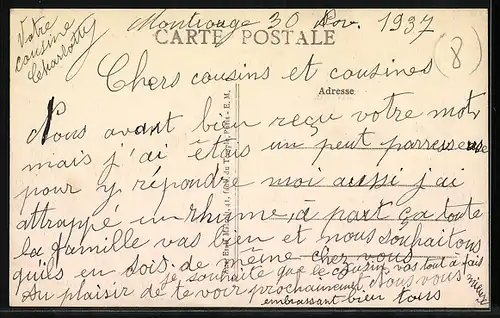 Montrouge 30 Nov. 1937
Votre
cousine
Charlotte
CARTE POSTALE
8
Chers cousins et cousines
Adresse
Nous avont bien reçu votre mot
mais j'ai étais un peut paresseuse
pour y répondre moi aussi j'ai
attrappé un rhume, à part ça toute
la famille vas bien et nous souhaitons
qu'ils en sois de même chez vous
je souhaite que le cousin vas tout à fais
mieux
Au plaisir de te voir prochainement Nous vous
embrassant bien tous